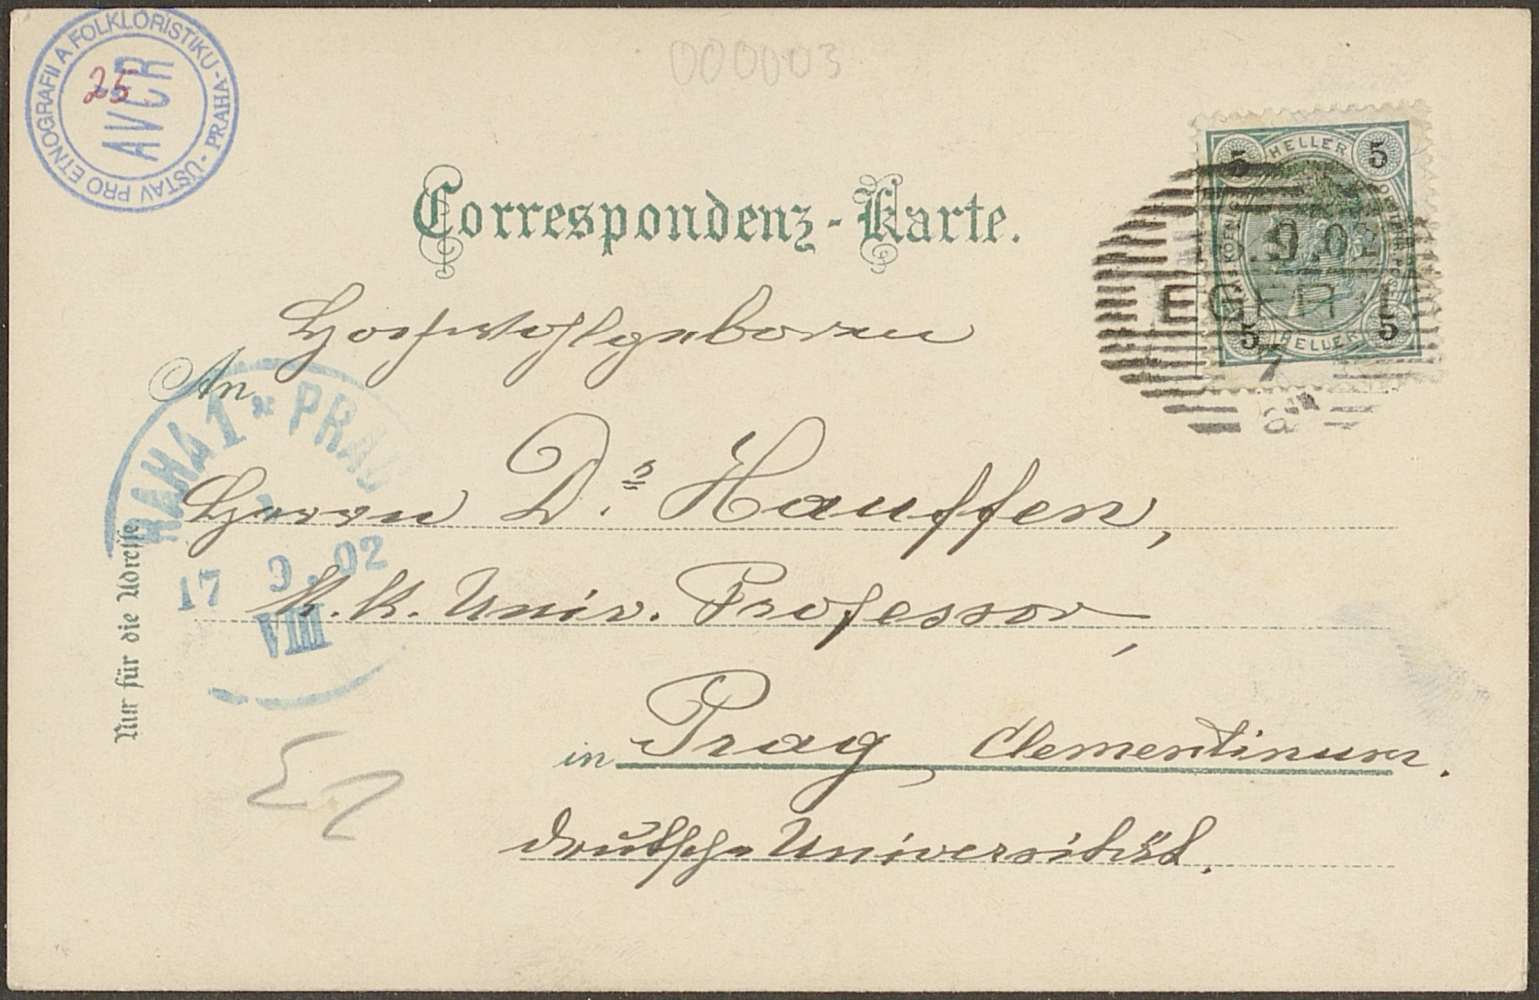 ÚSTAV PRO ETNOGRAFII A FOLKLORISTIKU - PRAHA -
AVČR
25
000003
Correspondenz-Karte.
5 HELLER 5
9.02
EGER 1
5 HELLER 5
7
Hochwohlgeboren
An
PRAHA 1 * PRAG
Herrn Dr. Hauffen,
17 9.02
K. K. Univ. Professor,
VIII
Nur für die Adresse
in Prag, Clementinum.
deutsche Universität.